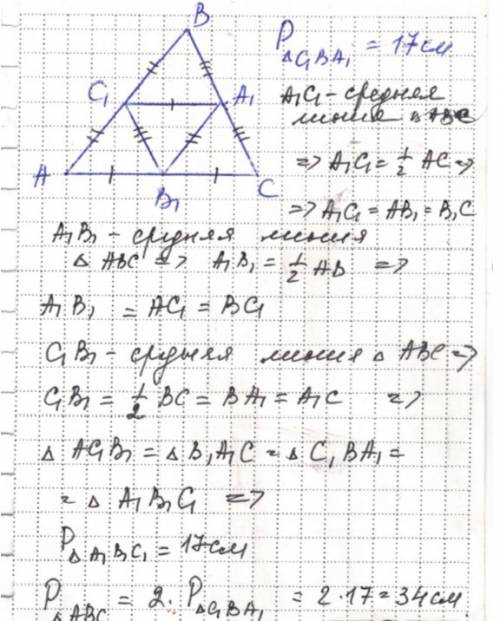 B
P△C₁BA₁ = 17см
C₁ A₁
A₁C₁ - средняя
линия △ABC
=> A₁C₁ = 1/2 AC =>
A B₁ C
=> A₁C₁ = AB₁ = B₁C
A₁B₁ - средняя линия
△ ABC => A₁B₁ = 1/2 AB =>
A₁B₁ = AC₁ = BC₁
C₁B₁ - средняя линия △ ABC =>
C₁B₁ = 1/2 BC = BA₁ = A₁C =>
△ AC₁B₁ = △ B₁A₁C = △ C₁BA₁ =
= △ A₁B₁C₁ =>
P△A₁B₁C₁ = 17см
P△ABC = 2 · P△C₁BA₁ = 2·17 = 34см